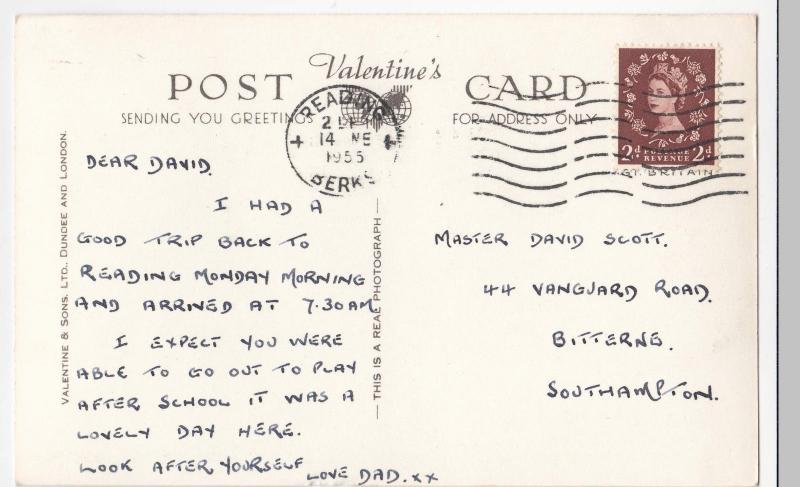 Valentine's
POST CARD
SENDING YOU GREETINGS
FOR ADDRESS ONLY
READING
14
1955
BERKS
2d POSTAGE 2d
REVENUE
GT. BRITAIN
VALENTINE & SONS. LTD., DUNDEE AND LONDON.
DEAR DAVID.
I HAD A
GOOD TRIP BACK TO
READING MONDAY MORNING
AND ARRIVED AT 7.30AM
I EXPECT YOU WERE
ABLE TO GO OUT TO PLAY
AFTER SCHOOL IT WAS A
LOVELY DAY HERE.
LOOK AFTER YOURSELF
LOVE DAD. xx
— THIS IS A REAL PHOTOGRAPH —
MASTER DAVID SCOTT.
44 VANGUARD ROAD.
BITTERNE.
SOUTHAMPTON.